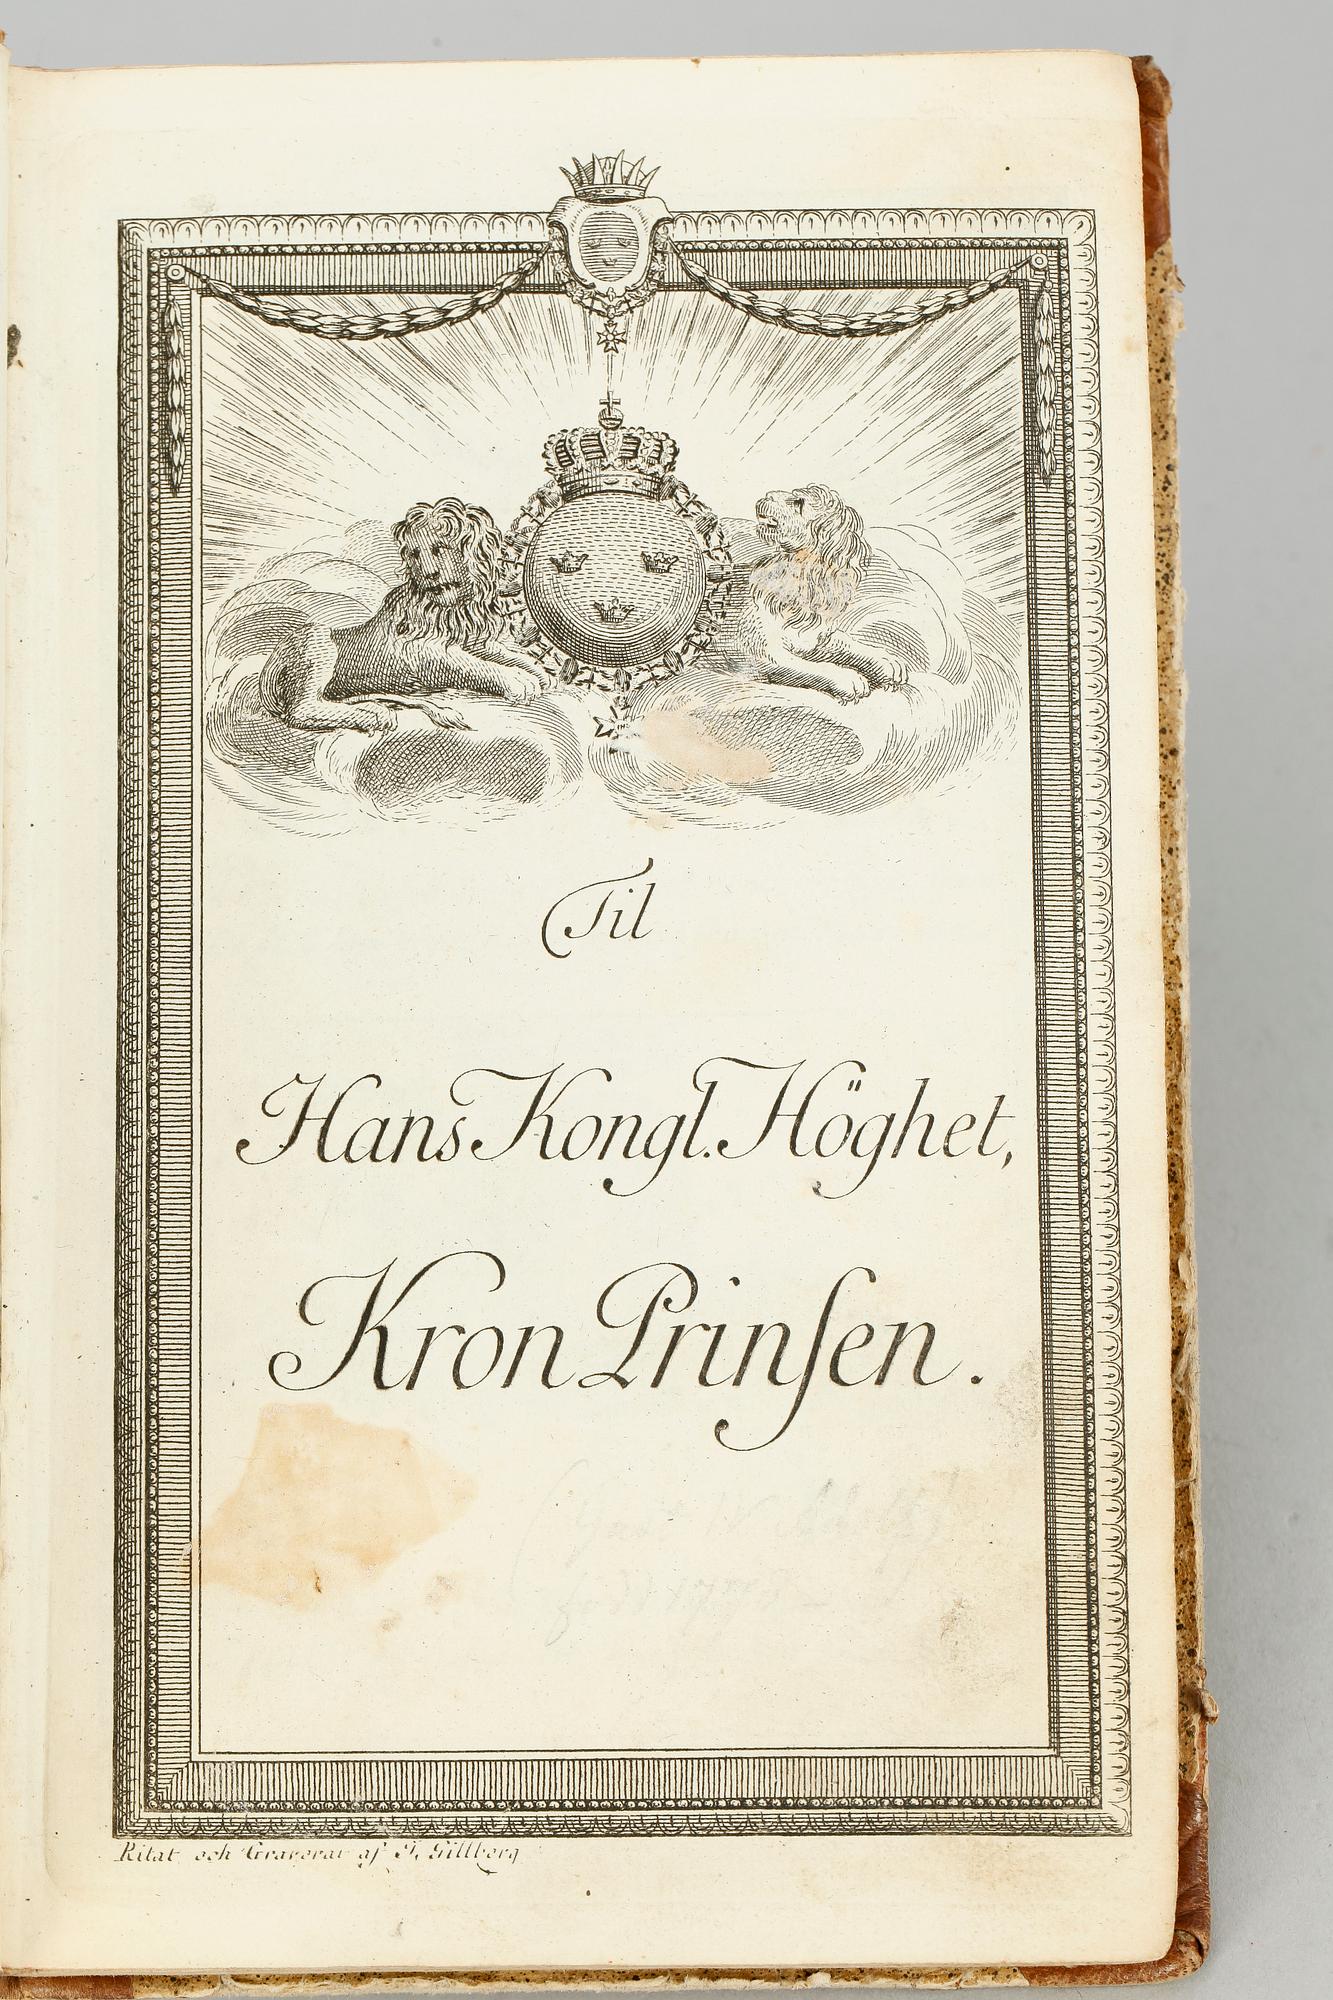 Til
Hans Kongl. Höghet,
Kron Prinſen.
(Gust IV Adolf)
Ritat och Graverat af J. Gillberg